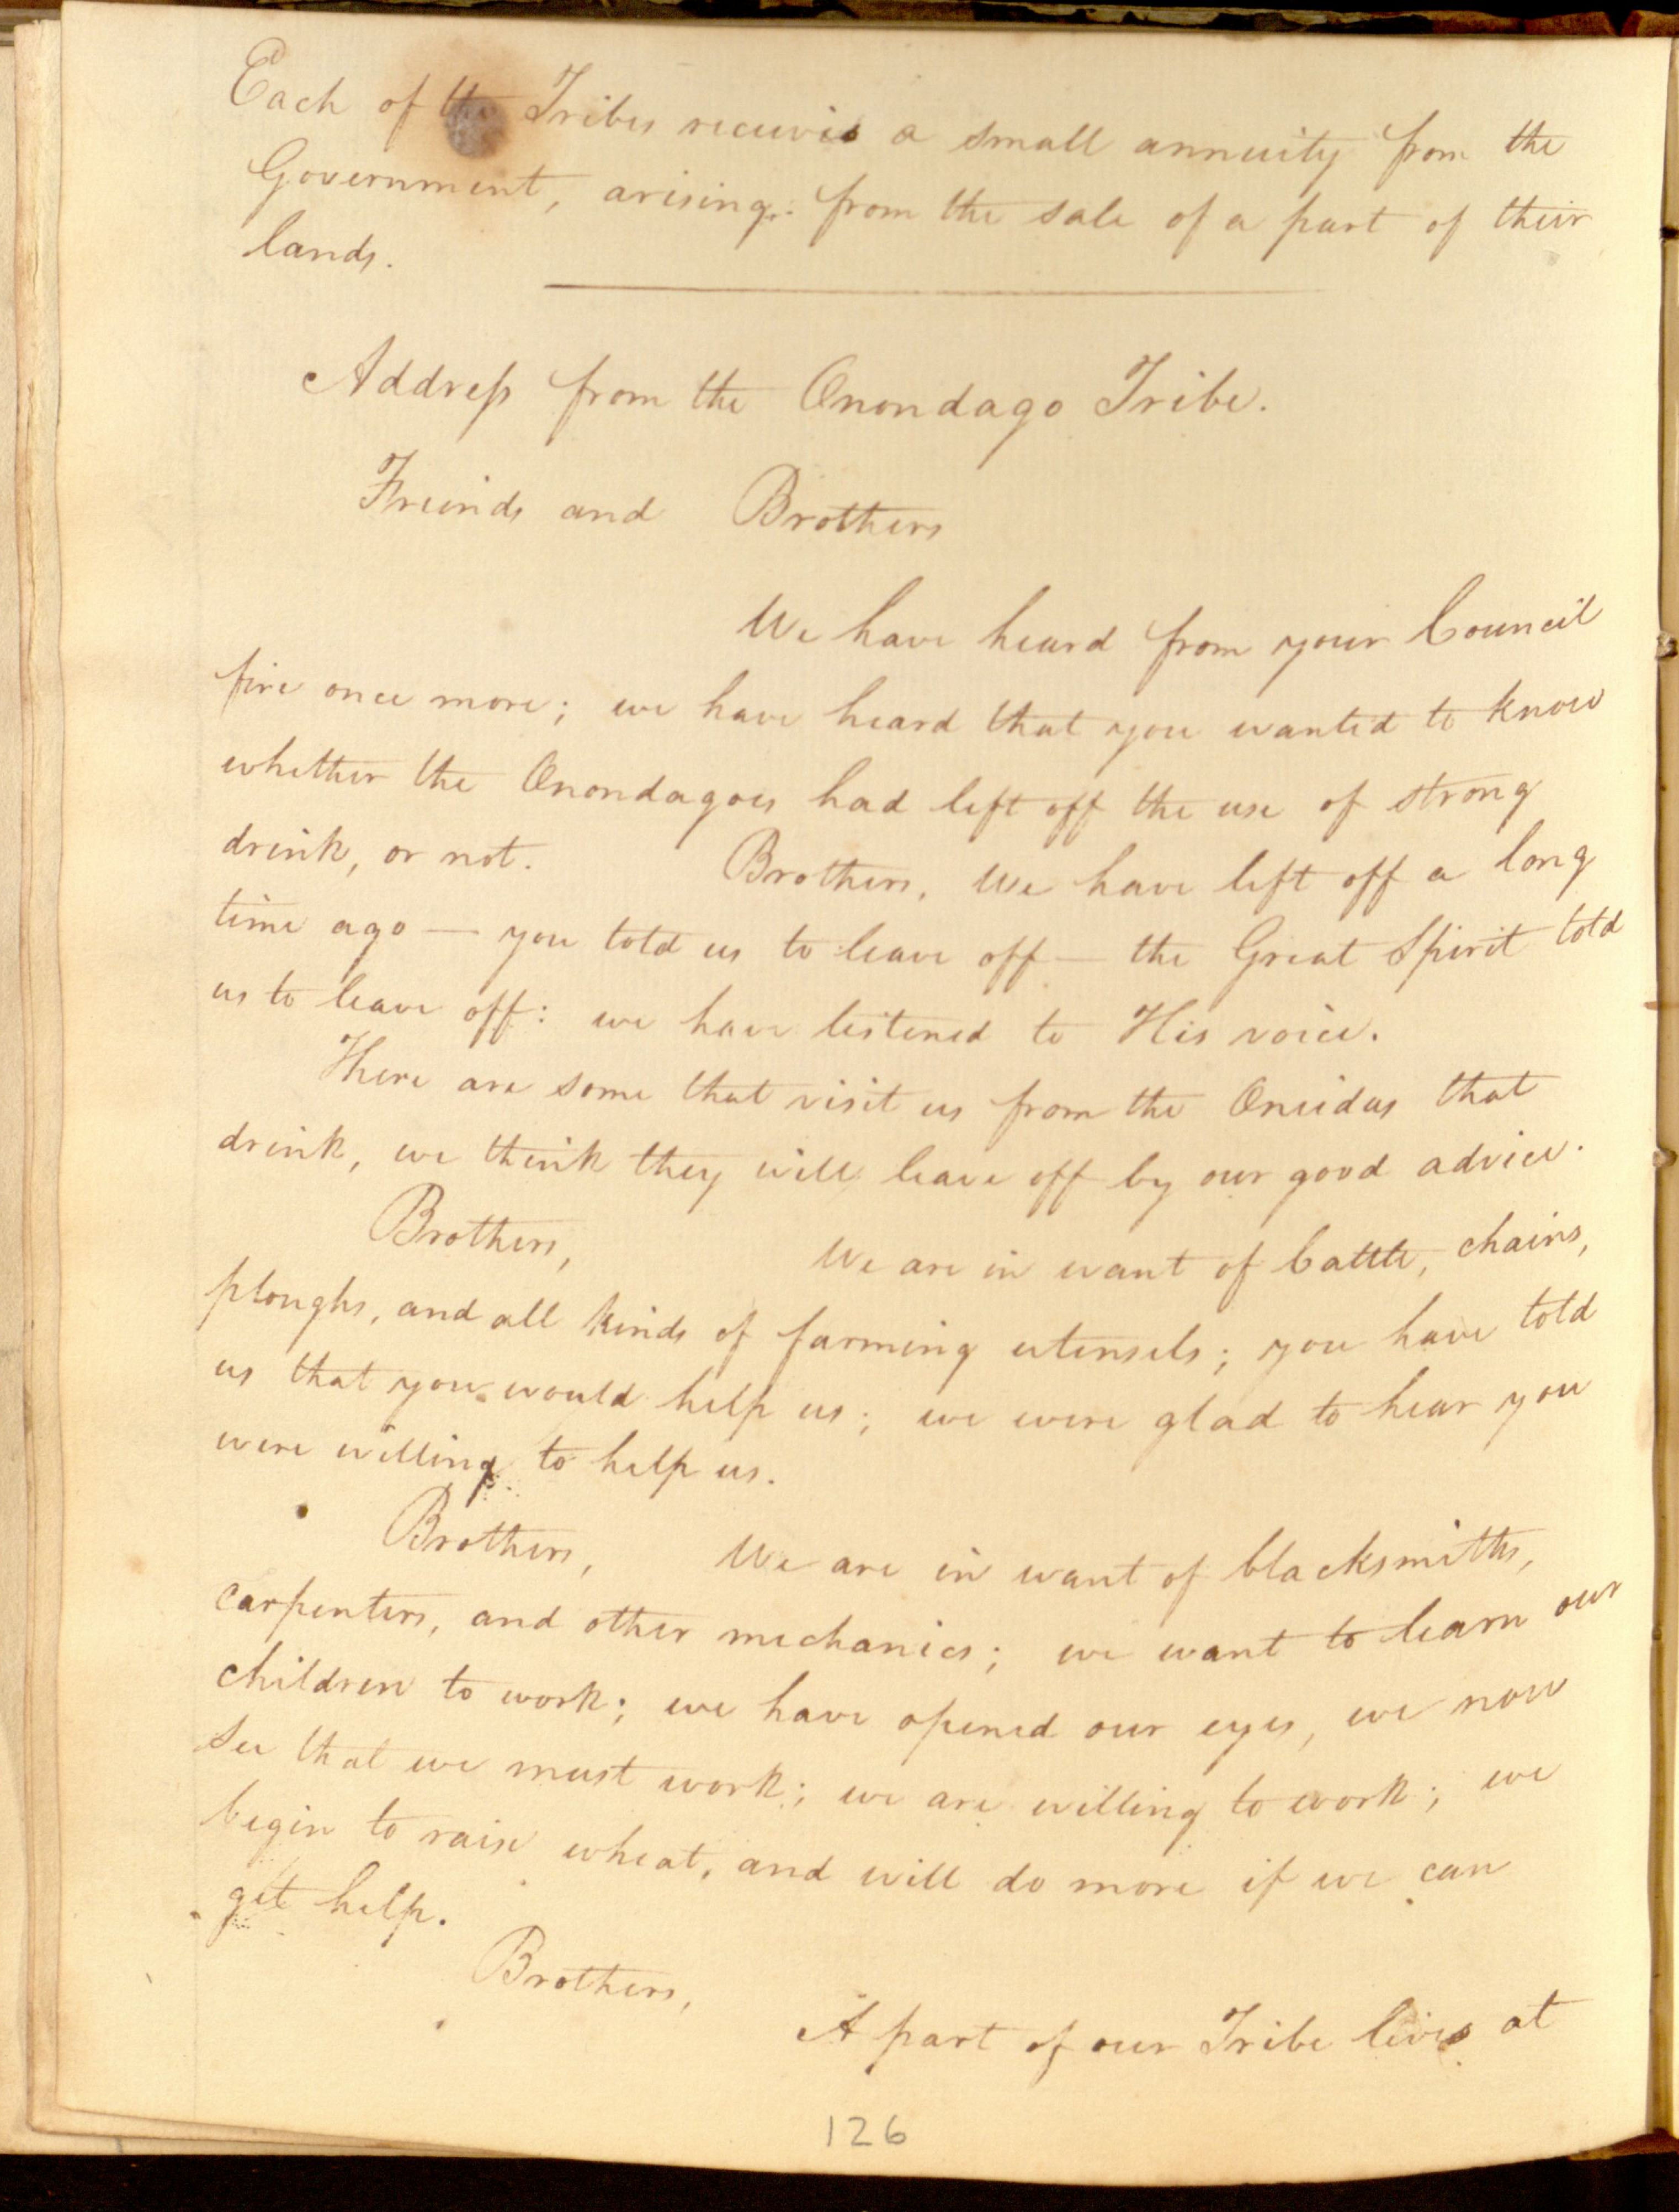 Each of the Tribes receives a small annuity from the
Government, arising from the sale of a part of their
lands.
Address from the Onondago Tribe.
Freinds and Brothers
We have heard from your Council
fire once more; we have heard that you wanted to know
whether the Onondagoes had left off the use of strong
drink, or not. Brothers, We have left off a long
time ago — you told us to leave off — the Great Spirit told
us to leave off: we have listened to His voice.
There are some that visit us from the Oneidas that
drink, we think they will leave off by our good advice.
Brothers, We are in want of Cattle, chains,
ploughs, and all kinds of farming utensils; you have told
us that you would help us; we were glad to hear you
were willing to help us.
Brothers, We are in want of blacksmiths,
carpenters, and other mechanics; we want to learn our
children to work; we have opened our eyes, we now
see that we must work; we are willing to work; we
begin to raise wheat, and will do more if we can
get help.
Brothers,
A part of our Tribe lives at
126